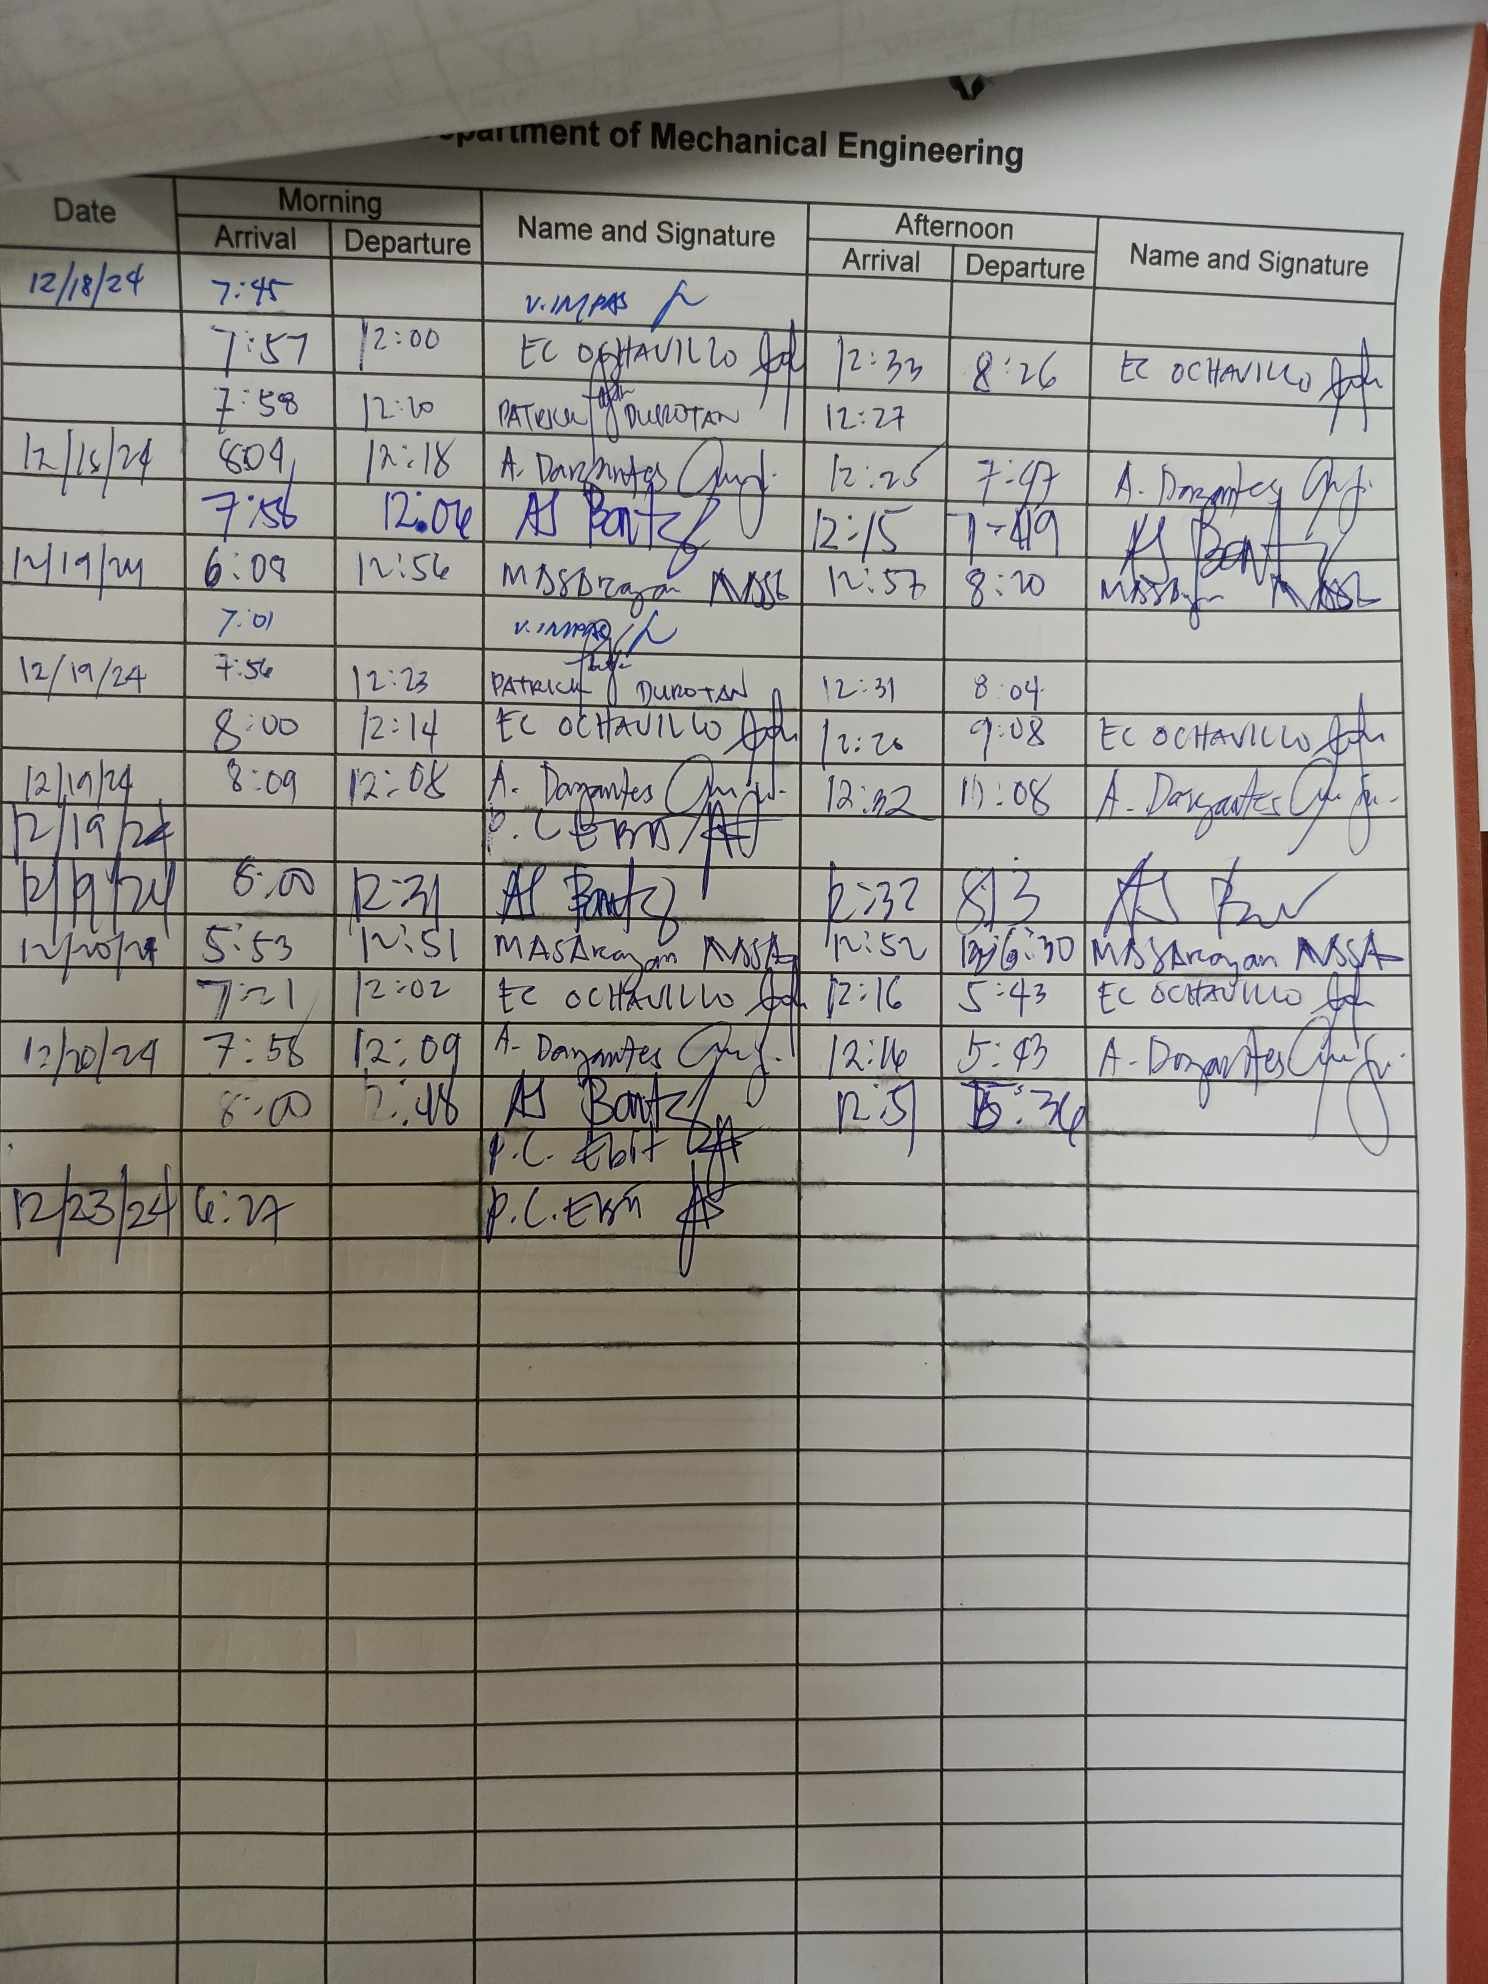 of Mechanical Engineering
Date Morning Name and Signature Afternoon Name and Signature
Arrival Departure Arrival Departure
12/18/24 7:45 V. IMPAS
7:57 12:00 EC OCHAVILLO 12:33 8:26 EC OCHAVILLO
7:58 12:20 PATRICK DUROTAN 12:27
12/18/24 804 12:18 A. Dargantes 12:25 7:47 A. Dargantes
7:56 12:06 AS Bontz 12:15 7:49 AS Bontz
12/19/24 6:08 12:56 MASDragon 12:57 8:20
7:01 V. IMPAS
12/19/24 7:56 12:23 PATRICK DUROTAN 12:31 8:04
8:00 12:14 EC OCHAVILLO 12:20 9:08 EC OCHAVILLO
12/19/24 8:09 12:08 A. Dargantes 12:32 11:08 A. Dargantes
12/19/24 P.C EBIT
12/19/24 8:00 12:31 AS Bontz 12:32 813 AS
12/20/24 5:53 12:51 MASDragon 12:52 6:30 MASDragon
7:21 12:02 EC OCHAVILLO 12:16 5:43 EC OCHAVILLO
12/20/24 7:58 12:09 A. Dargantes 12:16 5:43 A. Dargantes
8:00 12:48 AS Bontz 12:51 5:36
P.C. Ebit
12/23/24 6:27 P.C. EBIT